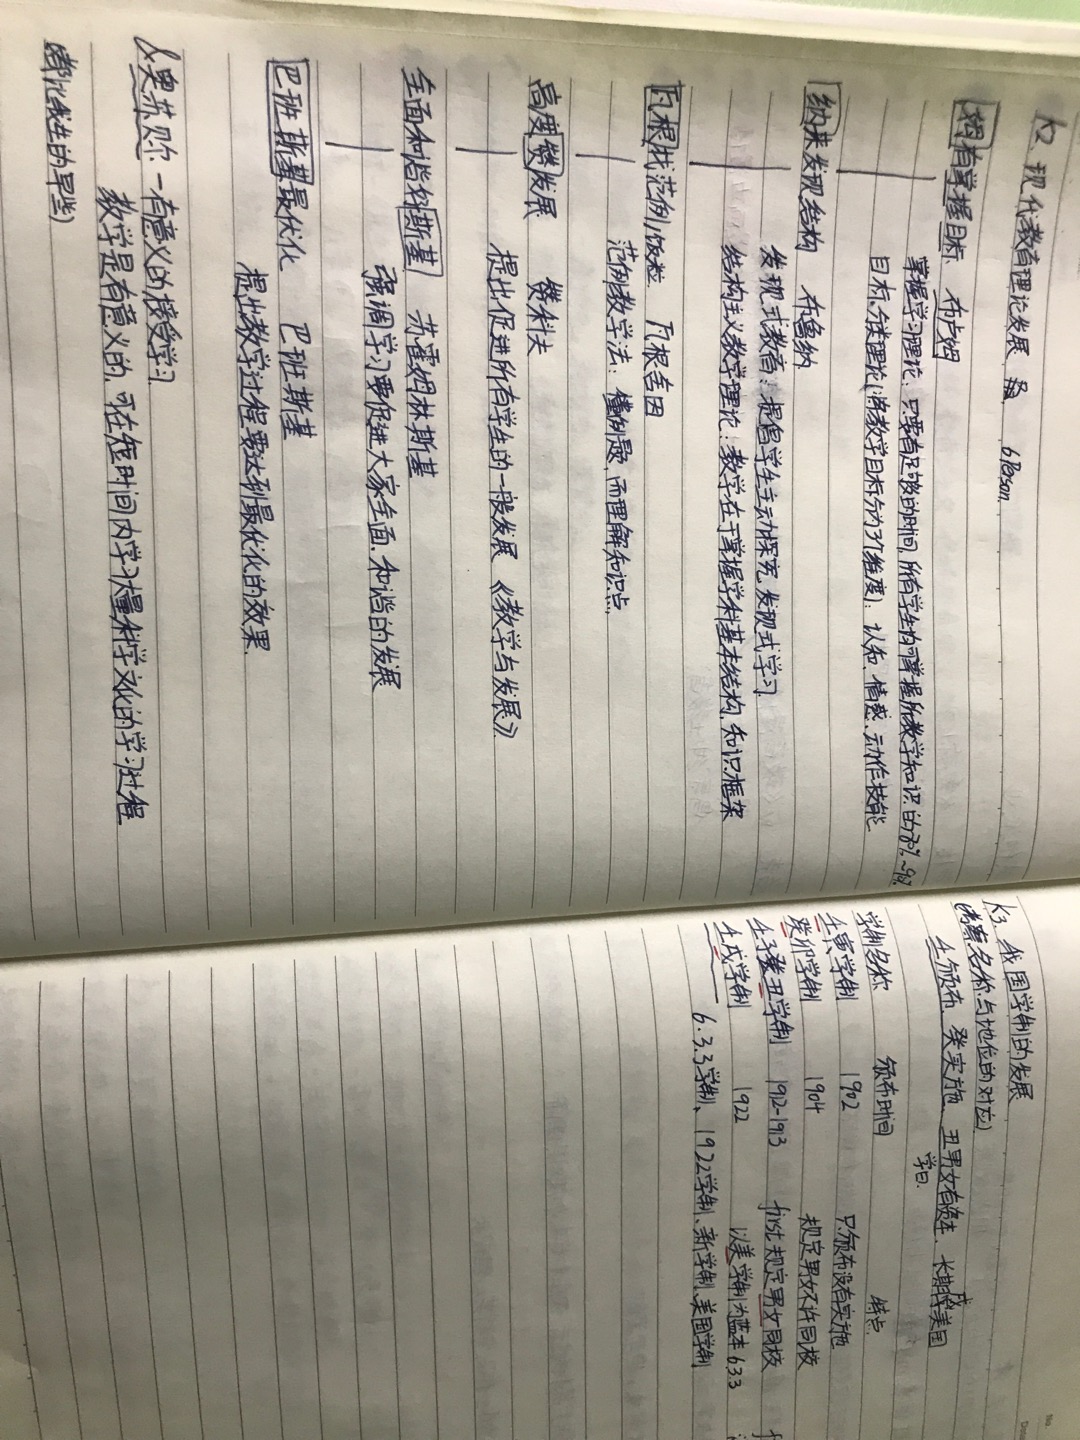 K2、现代教育理论发展 6 Person
姆有掌握目标、布卢姆
掌握学习理论：只要有足够的时间，所有学生均可掌握所教学知识的70%~90%
目标分类理论(将教学目标分为3个维度)：认知、情感、动作技能
纳来发现结构 布鲁纳
发现式教育：提倡学生主动探究，发现式学习
结构主义教学理论：教学在于掌握学科基本结构、知识框架
瓦根找范例/饭粒 瓦根舍因
范例教学法：懂例题，而理解知识点
高度赞发展 赞科夫
提出促进所有学生的一般发展《教学与发展》
全面和谐邻斯基 苏霍姆林斯基
强调学习要促进大家全面、和谐的发展
巴班斯基最优化 巴班斯基
提出教学过程要达到最优化的效果
奥苏贝尔—有意义的接受学习
教学是有意义的，可在短时间内学习大量科学文化的学习过程
K3. 我国学制的发展
名称与地位的对应)
壬颁布、癸实施、丑男女有资本、长期戌美国
学制名称 颁布时间 特点
壬寅学制 1902 只颁布没有实施
癸卯学制 1904 规定男女不许同校
壬子癸丑学制 1912-1913 first规定男女同校
壬戌学制 1922 以美学制为蓝本 6.3.3
6.3.3学制、1922学制、新学制、美国学制